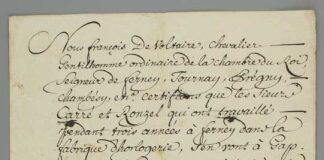 Nous françois De Voltaire, Chevalier
Gentilhomme ordinaire de la chambre du Roi,
Seigneur de Ferney, Tournay, Prégny,
Chambésy, etc. Certifions que les Sieur
Carré et Ronzel qui ont travaillé
pendant trois années à ferney dans la
fabrique d'horlogerie, s'en vont à Gap